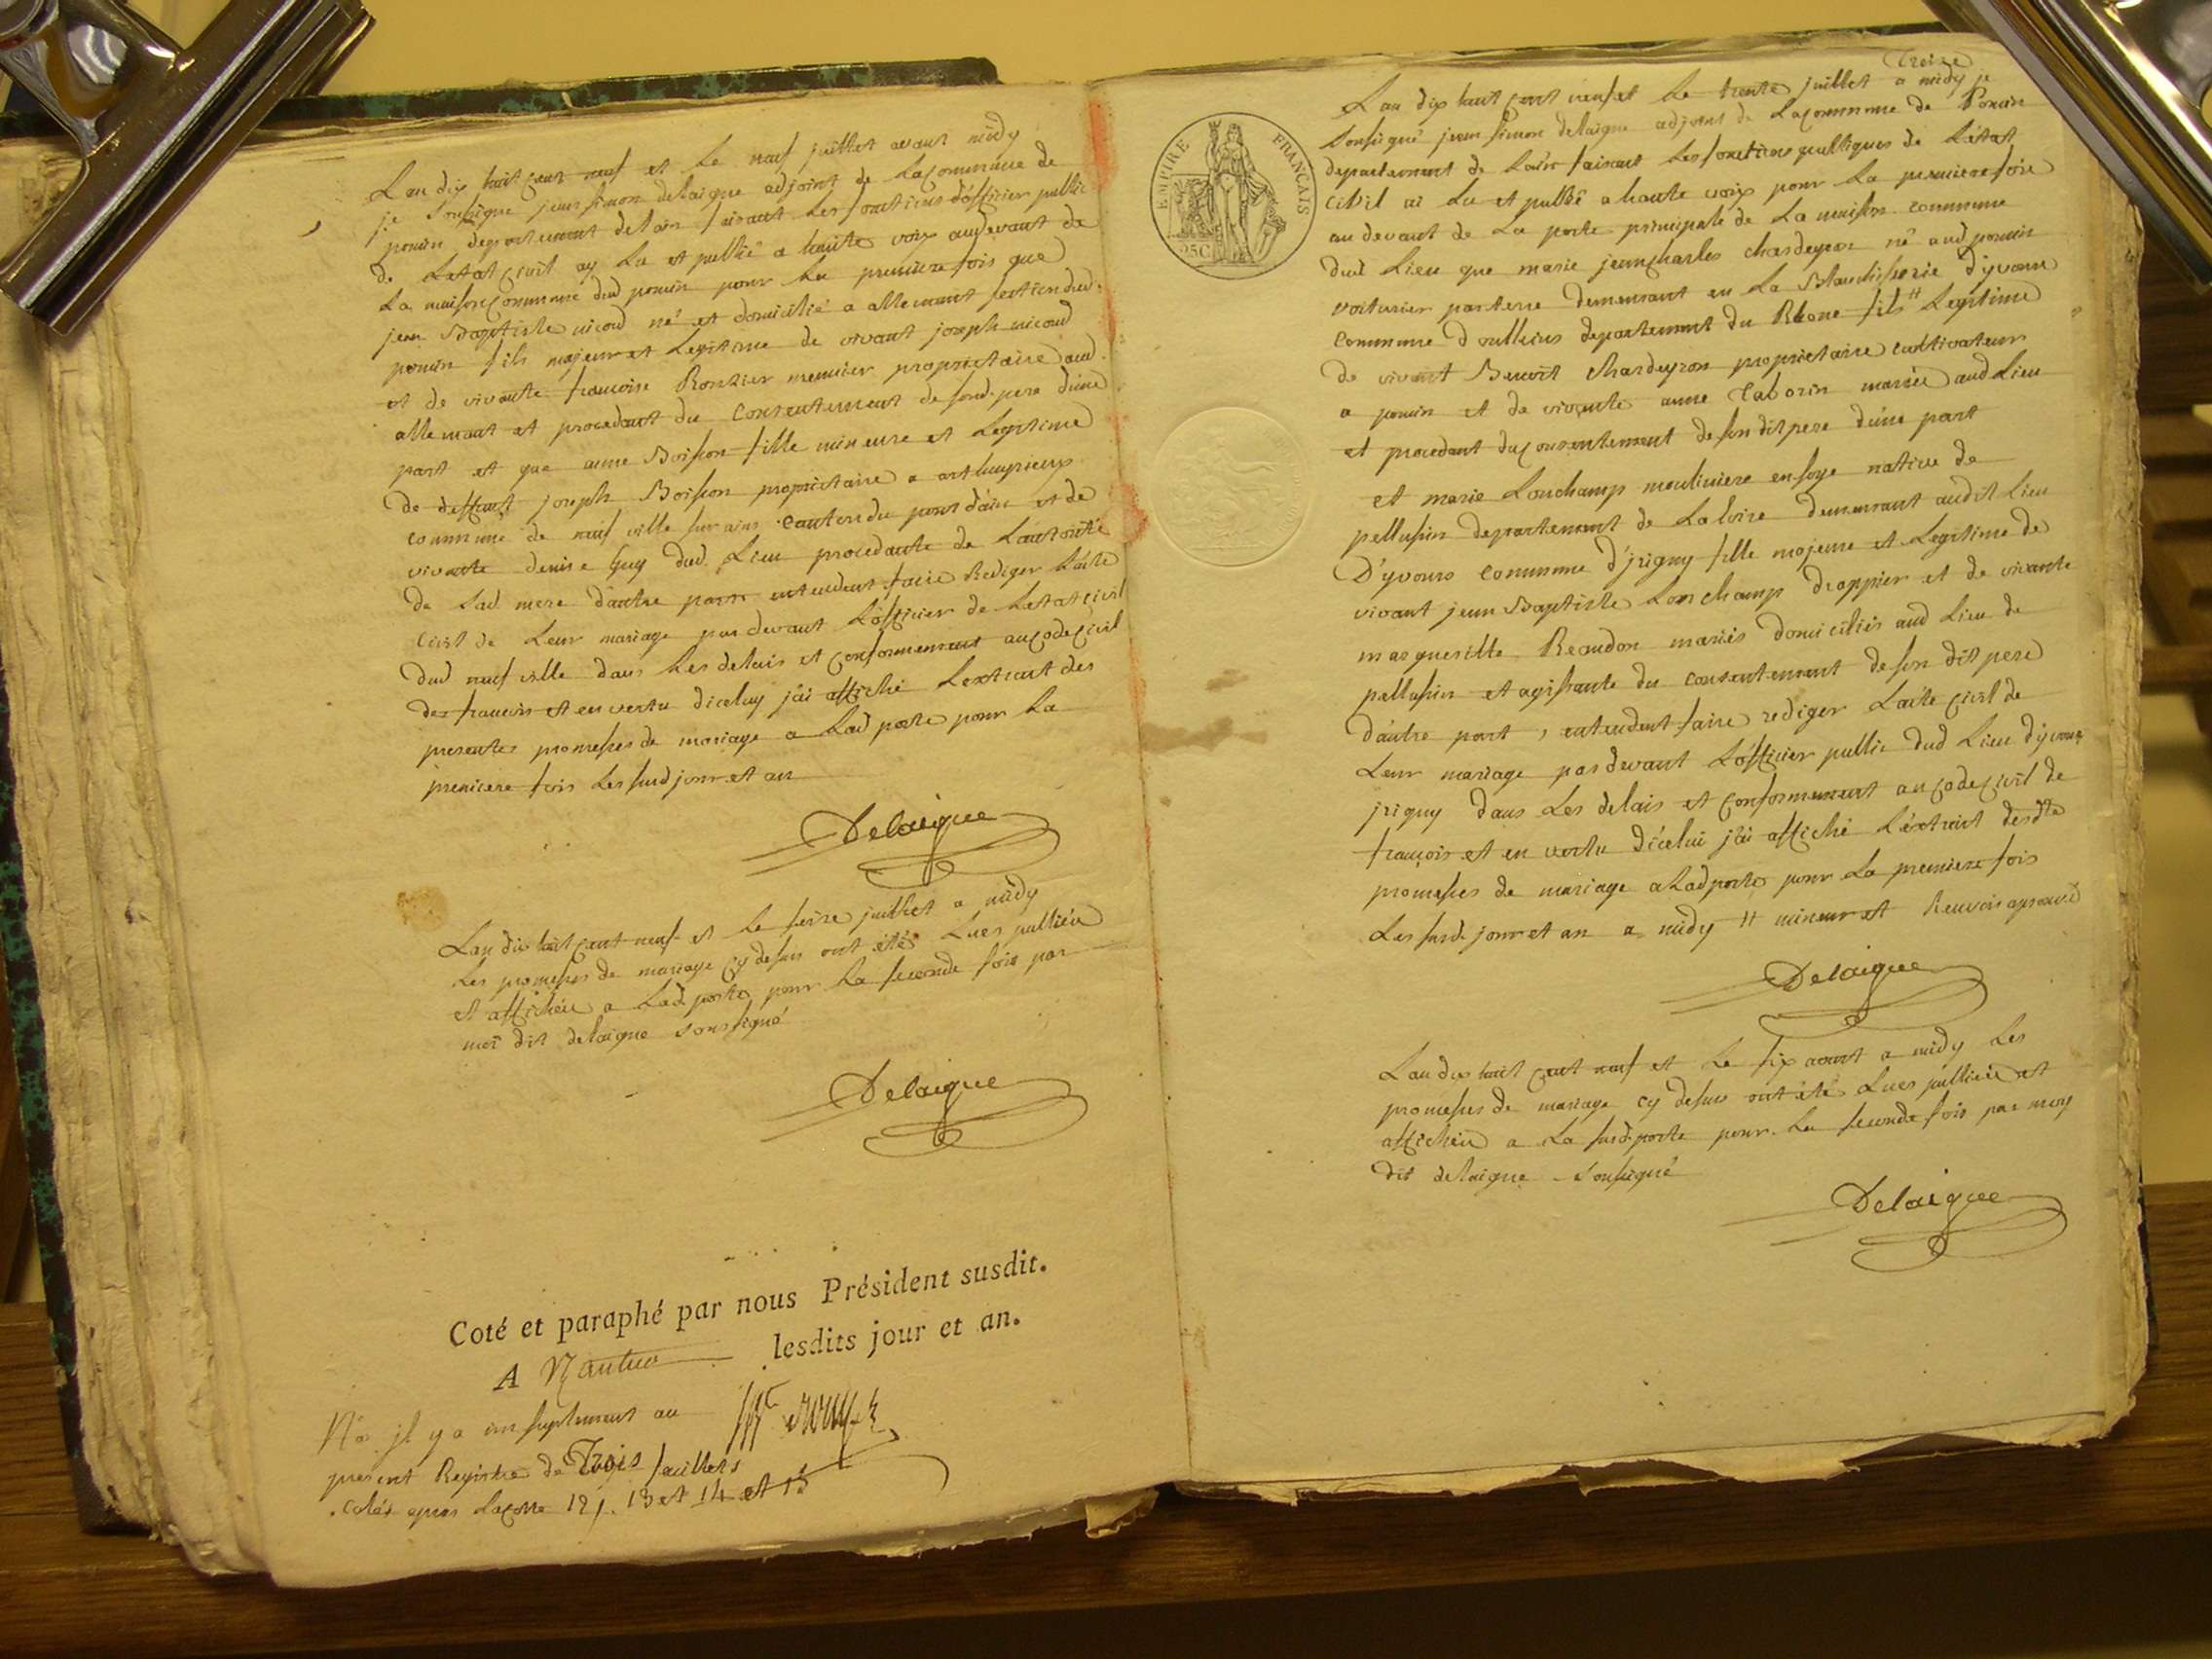 Lan dix huit cent neuf et le neuf juillet avant midy
je soussigne jean simon delaigue adjoint de la commune de
poncin departement de lain faisant les fonctions d'officier public
de letat civil ay lu et publié a haute voix audevant de
la maison commune dud poncin pour la premiere fois que
jean Baptiste nicoud né et domicilié a allement section dud.
poncin fils majeur et legitime de vivant joseph nicoud
et de vivante francoise Ronzier meunier proprietaire aud.
allement et procedant du consentement de sond. pere d'une
part et que anne Boisson fille mineure et legitime
de deffunt joseph Boisson proprietaire a
commune de neuf ville sur ains canton du pont d'ain et de
vivante denise Guy dud. Lieu procedante de Lautorité
de sad mere d'autre part entendent faire Rediger Lacte
civil de Leur mariage par devant Lofficier de Letat civil
dud neuf ville dans Les delais et conformement au code civil
des francois et en vertu diceluy j'ai affiché Lextrait des
presentes promesses de mariage a Lad porte pour La
premiere fois Les susd jour et an
Delaigue
Lan dix huit cent neuf et le seize juillet a midy
Les promesses de mariage cy dessus ont été Lues publiées
et affichées a Lad. porte pour La seconde fois par
moi dit delaigue soussigné
Delaigue
Coté et paraphé par nous Président susdit.
A Nantua lesdits jour et an.
Na. jl y a un suplement au
present Registre de Trois feuillets
cotés apres La cotte 12, 13 et 14 et 15
Treize
EMPIRE FRANÇAIS
25C
Lan dix huit cent neuf et le trente juillet a midy je
soussigné jean simon delaigue adjoint de La commune de Poncin
departement de Lain faisant Les fonctions publiques de Létat
civil ai Lu et publié a haute voix pour La premiere fois
au devant de La porte principale de La maison commune
dud Lieu que marie jean charles chardeyron né aud poncin
voiturier par terre demeurant en La Blanchisserie d'yvours
commune d'oullins departement du Rhone fils # Legitime
de vivant Benoit Chardeyron proprietaire cultivateur
a poncin et de vivante anne Taborin mariés aud Lieu
et procedant du consentement de son dit pere d'une part
et marie Lonchamp mouliniere en soye native de
pellusin departement de La loire demeurant audit Lieu
D'yvours commune d'jrigny fille majeure et Legitime de
vivant jean Baptiste Lonchamp drappier et de vivante
marguerilte Reaudon mariés domiciliés aud Lieu de
pellusin et agissante du consentement de son dit pere
d'autre part, entendent faire rediger Lacte civil de
Leur mariage pardevant Lofficier public dud Lieu d'yvours
jrigny dans Les delais et conformement au code civil de
françois et en vertu dicelui j'ai affiché Léxtrait desdtes
promesses de mariage a Lad porte pour La premiere fois
Les susd. jour et an a midy # mineur et Renvoi aprouvé
Delaigue
Lan dix huit cent neuf et Le six aoust a midy Les
promesses de mariage cy dessus ont été Lues publiées et
affichées a La susd. porte pour La seconde fois par moy
dit delaigue soussigné
Delaigue